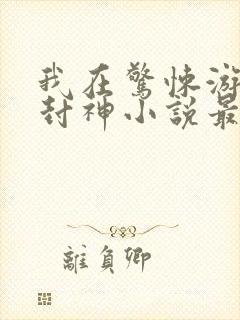 我在驚悚游
封神小說最
離負卿